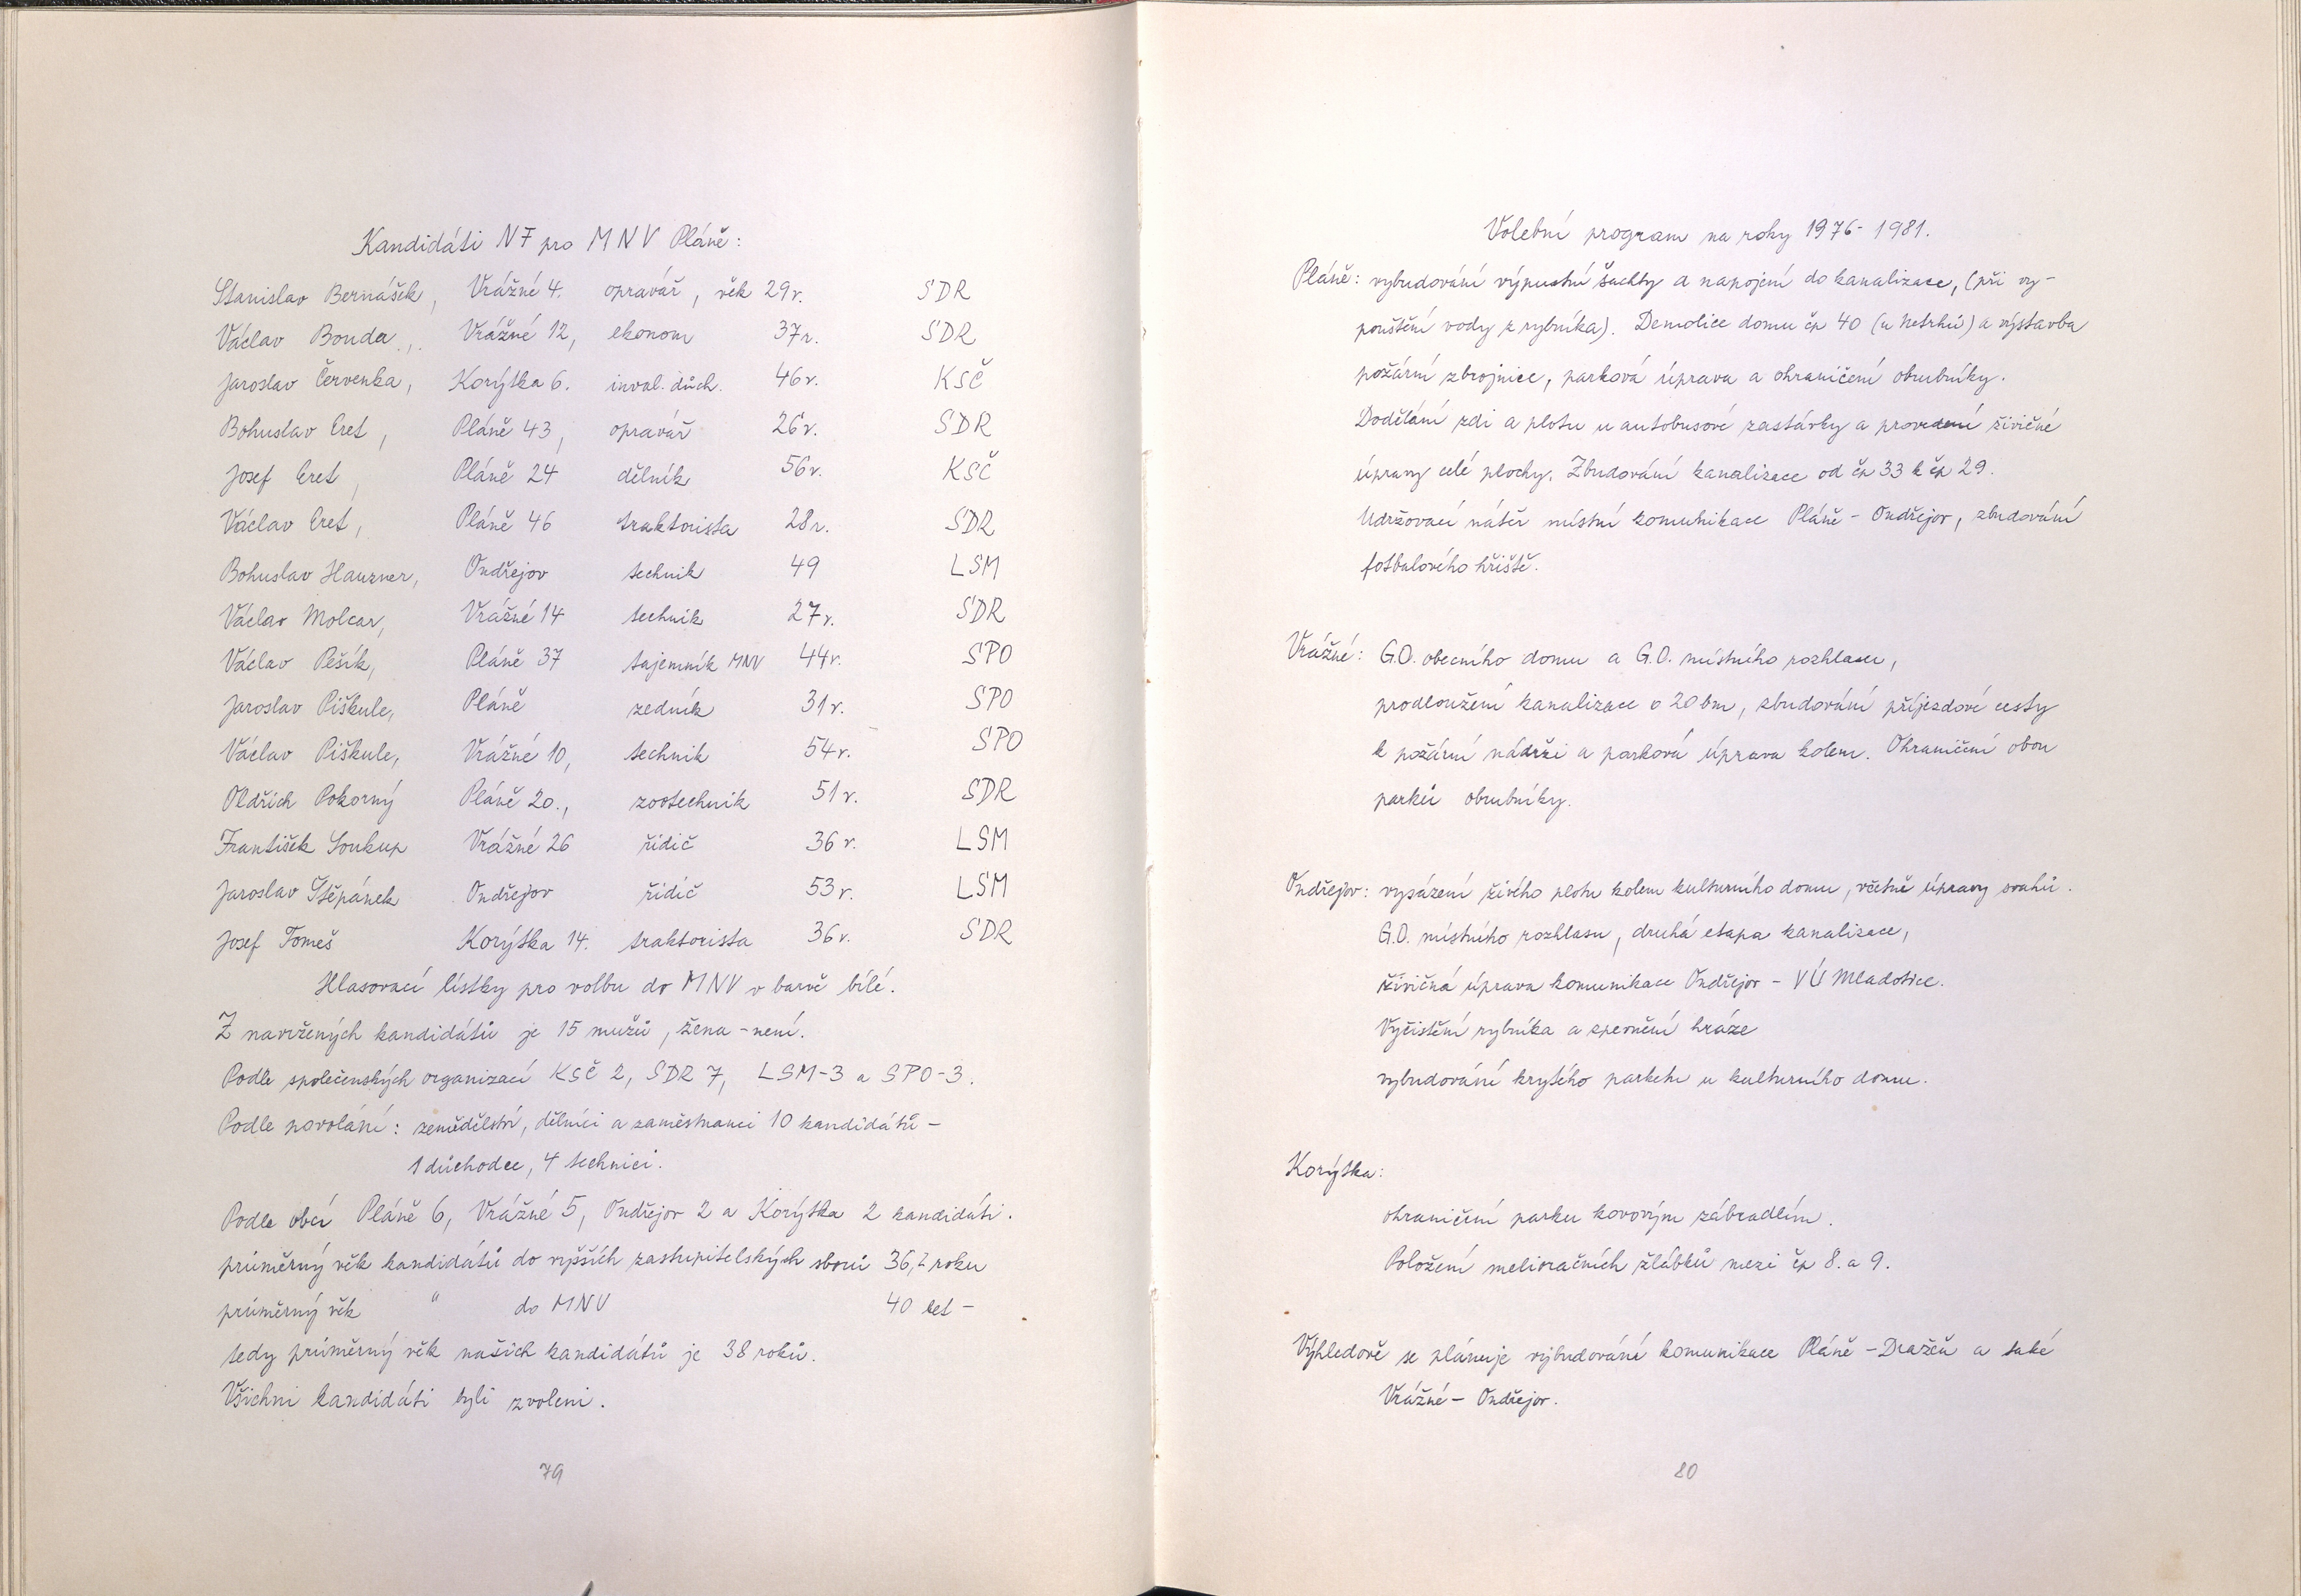 Kandidáti NF pro MNV Pláně:
Stanislav Bernášek, Vrážné 4. opravář, věk 29r. SDR
Václav Bouda, Vrážné 12, ekonom 37r. SDR
Jaroslav Červenka, Korýtka 6. inval. důch. 46r. KSČ
Bohuslav Eret, Pláně 43, opravář 26r. SDR
Josef Eret, Pláně 24 dělník 56r. KSČ
Václav Eret, Pláně 46 traktorista 28r. SDR
Bohuslav Hauzner, Ondřejov technik 49 LSM
Václav Molcar, Vrážné 14 technik 27r. SDR
Václav Pešík, Pláně 37 tajemník MNV 44r. SPO
Jaroslav Piškule, Pláně zedník 31r. SPO
Václav Piškule, Vrážné 10, technik 54r. SPO
Oldřich Pokorný Pláně 20., zootechnik 51r. SDR
František Soukup Vrážné 26 řidič 36r. LSM
Jaroslav Štěpánek Ondřejov řidič 53r. LSM
Josef Tomeš Korýtka 14. traktorista 36r. SDR
Hlasovací lístky pro volbu do MNV v barvě bílé.
Z navržených kandidátů je 15 mužů, žena - není.
Podle společenských organizací KSČ 2, SDR 7, LSM-3 a SPO-3.
Podle povolání: zemědělství, dělníci a zaměstnanci 10 kandidátů -
1 důchodce, 4 technici.
Podle obcí Pláně 6, Vrážné 5, Ondřejov 2 a Korýtka 2 kandidáti.
průměrný věk kandidátů do vyšších zastupitelských sborů roku
průměrný věk " do MNV 40 let -
tedy průměrný věk našich kandidátů je 38 roků.
Všichni kandidáti byli zvoleni.
79
Volební program na roky 1976-1981.
Pláně: vybudování výpustní šachty a napojení do kanalizace, (při vy-
pouštění vody z rybníka). Demolice domu čp 40 (u ) a výstavba
požární zbrojnice, parková úprava a ohraničení obrubníky.
Dodělání zdi a plotu u autobusové zastávky a provedení živičné
úpravy celé plochy. Zbudování kanalizace od čp 33 k čp 29.
Udržovací nátěr místní komunikace Pláně - Ondřejov, zbudování
fotbalového hřiště.
Vrážné: G.O. obecního domu a G.O. místního rozhlasu,
prodloužení kanalizace o 20 bm, zbudování příjezdové cesty
k požární nádrži a parková úprava kolem. Ohraničení obou
parků obrubníky.
Ondřejov: vysázení živého plotu kolem kulturního domu, včetně úpravy svahů.
G.O. místního rozhlasu, druhá etapa kanalizace,
živičná úprava komunikace Ondřejov - VÚ Mladotice.
Vyčistění rybníka a zpevnění hráze
vybudování krytého parketu u kulturního domu.
Korýtka:
ohraničení parku kovovým zábradlím.
Položení melioračních žlábků mezi čp 8. a 9.
Výhledově se plánuje vybudování komunikace Pláně - Dražeň a také
Vrážné - Ondřejov.
80